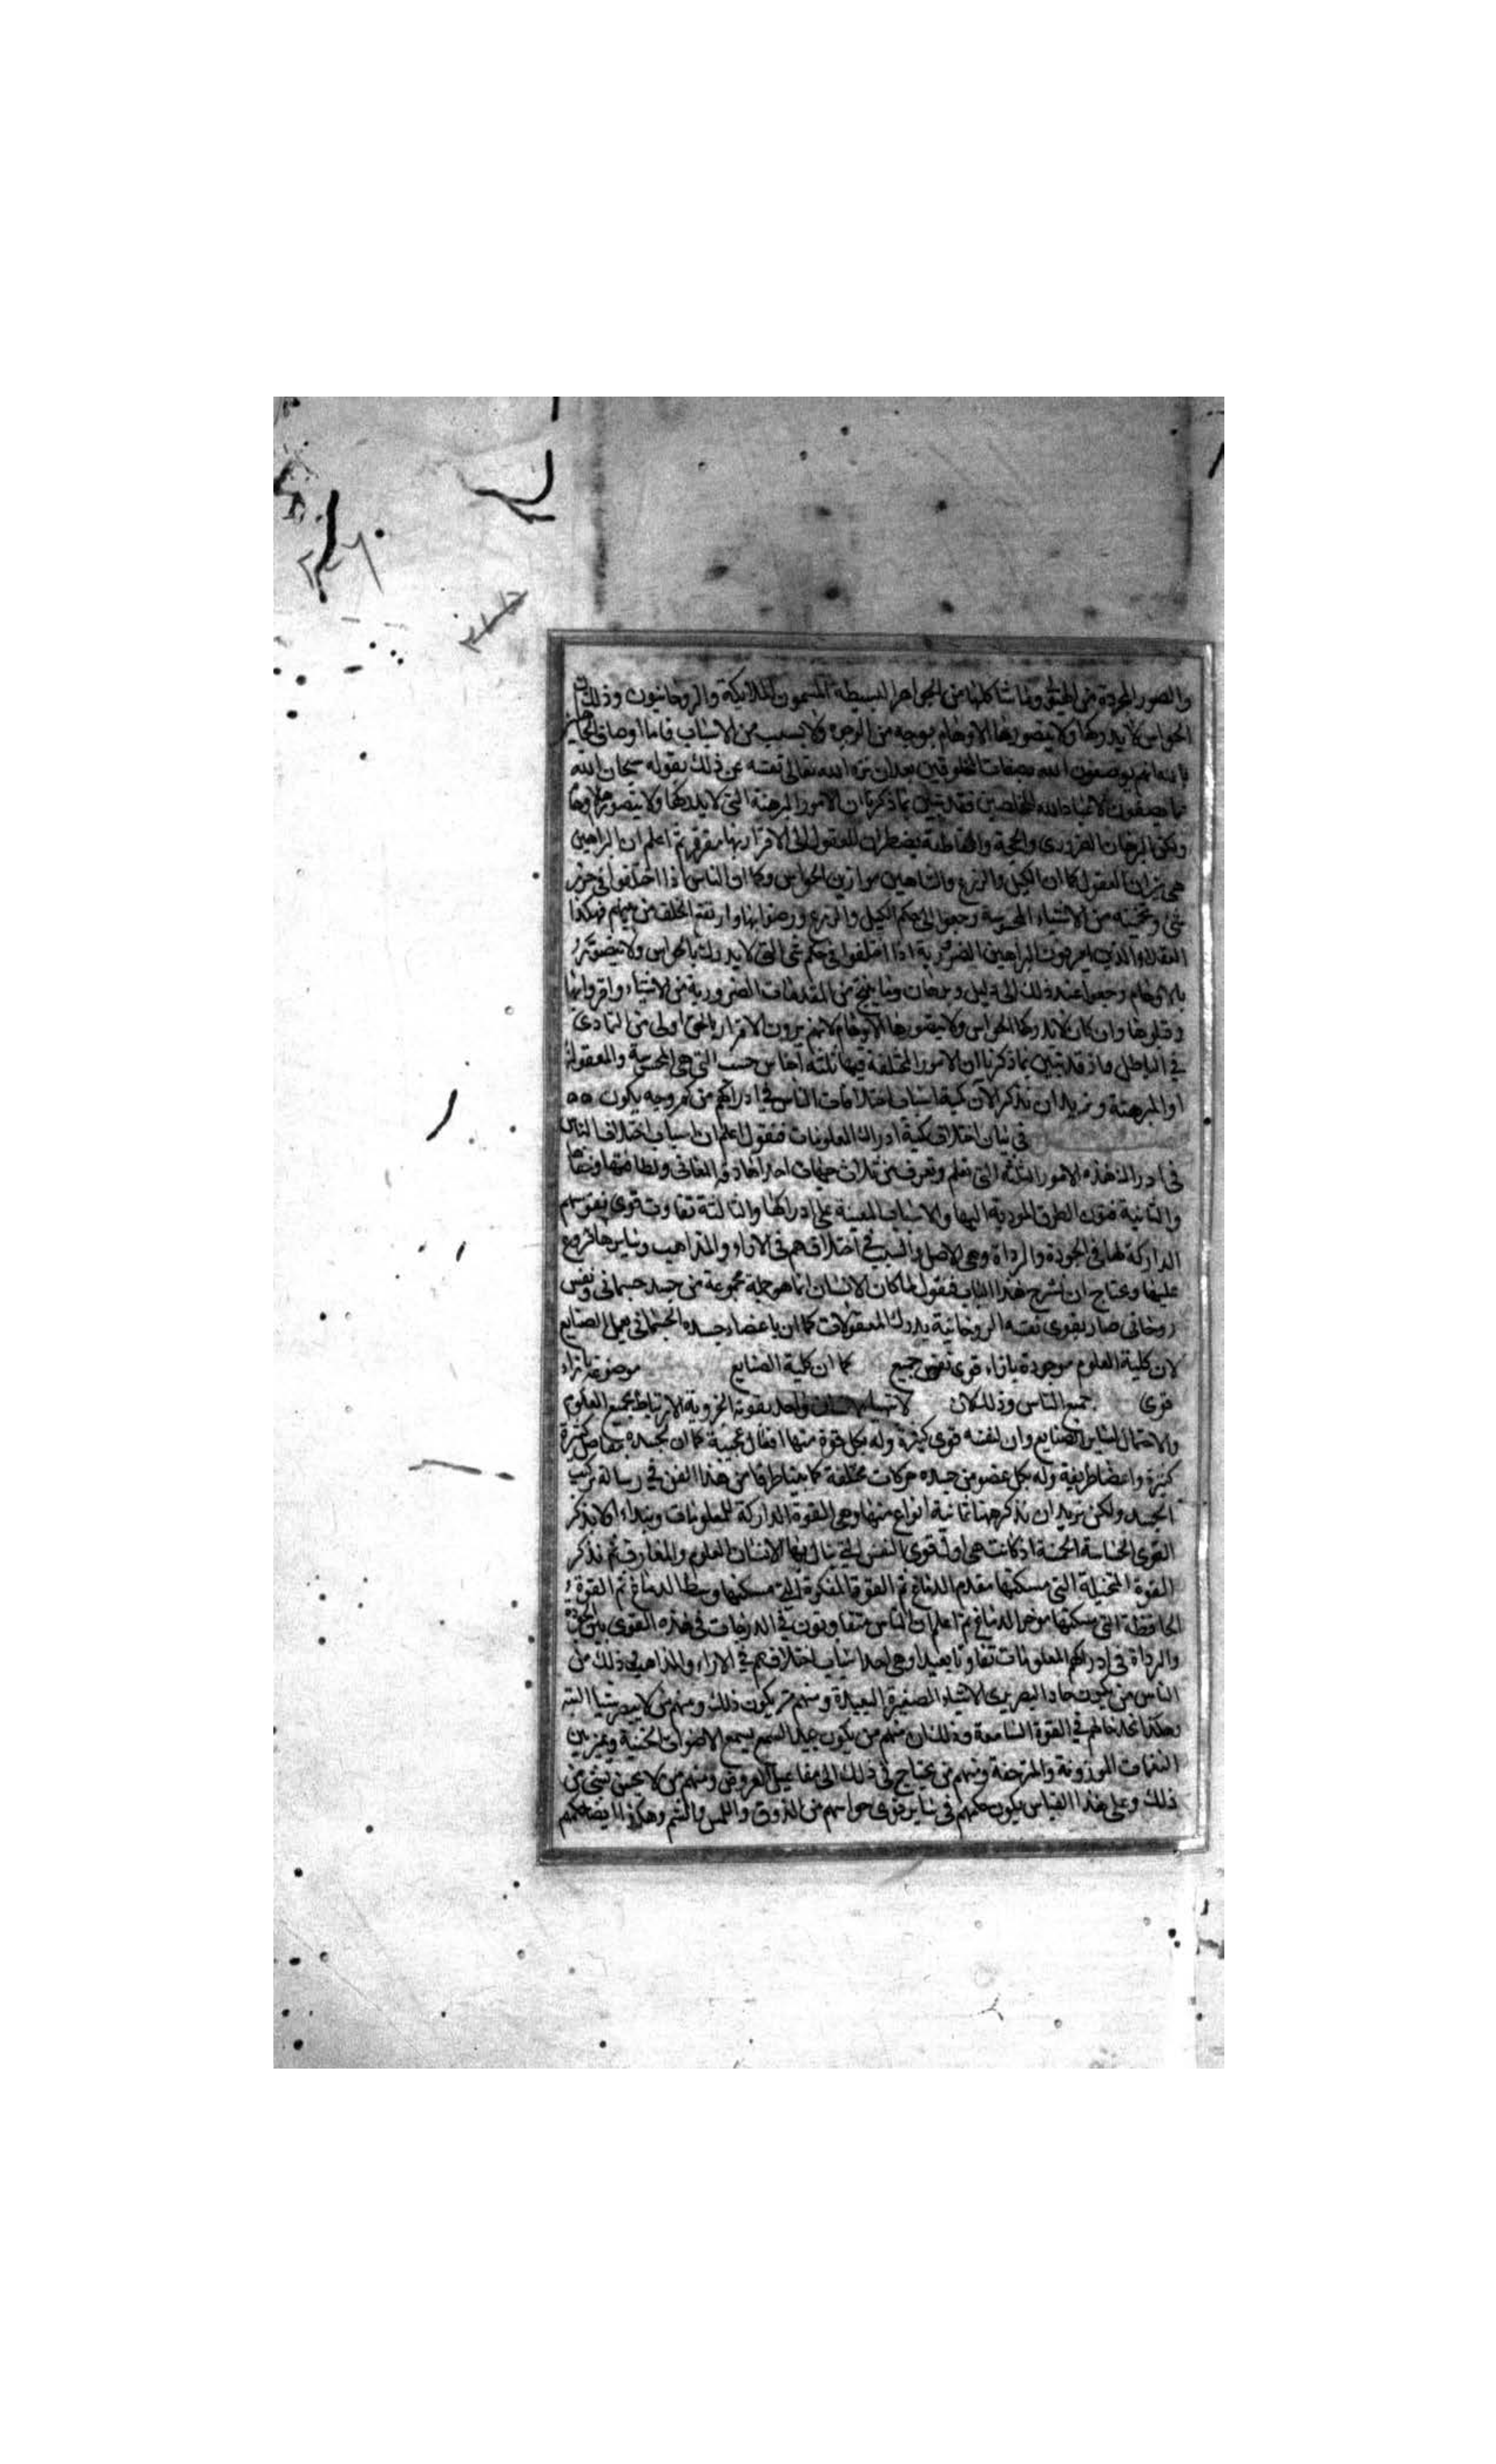 والصور المجردة من الهيولى وما شاكلها من الجواهر البسيطة المسمون الملايكة والروحانيون وذلك ان
الحواس لا يدركها ولا يتصورها الاوهام بوجه من الوجوه ولا بسبب من الاسباب فاما اوصاف
بالله انهم يوصفون الله بصفات المخلوقين بعد ان نزه الله تعالى نفسه عن ذلك بقوله سبحان الله
عما يصفون الا عباد الله المخلصين فقد تبين بما ذكرنا ان الامور المبرهنة التى لا يدركها ولا يتصورها الاوهام
ولكن البرهان الضرورى والحجة القاطعة يضطران العقول الى الاقرار بها ثم اعلم ان البراهين
هى ميزان العقول كما ان الكيل والذرع والشاهين موازين الحواس وكما ان الناس اذا اختلفوا فى حزر
شى وتخمينه من الاشياء المحسوسة رجعوا الى حكم الكيل والذرع ورضوا بها وارتفع الخلف من بينهم فهكذا
العقلاء الذين يعرفون البراهين الضرورية اذا اختلفوا فى حكم شى التى لا يدرك بالحواس ولا يتصور
بالاوهام رجعوا عند ذلك الى دليل وبرهان وما ينتج من المقدمات الضرورية من الاشياء واقروا بها
وقبلوها وان كان لا يدركها الحواس ولا يتصورها الاوهام لانهم يرون الاقرار بالحق اولى من التمادى
فى الباطل فاذ قد تبين بما ذكرنا ان الامور المختلفة فيها ثلثة اجناس حسب التى هى المحسوسة والمعقولة
او المبرهنة ونريد ان نذكر الآن كمية اسباب اختلافات الناس فى ادراكهم من كم وجه يكون
فى بيان اختلاف كمية ادراك المعلومات فنقول اعلم ان اسباب اختلاف الناس
فى ادراك هذه الامور الثلثة التى تعلم وتعرف من ثلاث جهات احدها دقة المعانى ولطافتها وخفاها
والثانية فنون الطرق المودية اليها والاسباب المعينة على ادراكها والثالثة تفاوت قوى نفوسهم
الداركة لها فى الجودة والرداة وهى الاصل والسبب فى اختلافهم فى الاراء والمذاهب وسايرها فروع
عليها ونحتاج ان نشرح هذا الباب فنقول لما كان الانسان انما هو جملة مجموعة من جسد جسمانى ونفس
روحانى صار بقوى نفسه الروحانية يدرك المعقولات كما ان باعضاء جسده الجسمانى يعمل الصنايع
لان كلية العلوم موجودة بازاء قوى نفوس جميع كما ان كلية الصنايع موضوعة بازاء
قوى جميع الناس وذلك لان لا تتهيا لانسان واحد بقوته الجزوية الارتباط بجميع العلوم
والاحتمال لساير الصنايع وان لنفسه قوى كثيرة وله بكل قوة منها افعال عجيبة كما ان لجسده مفاصل كثيرة
كثيرة واعضا طريفة وله بكل عضو من جسده حركات مختلفة كما بينا طرفا من هذا الفن فى رسالة تركيب
الجسد ولكن نريد ان نذكر ههنا ثمانية انواع منها وهى القوة الداركة للمعلومات ونبداء اولا بذكر
القوى الحساسة الخمسة اذ كانت هى اول قوى النفس التى ينال بها الانسان العلوم والمعارف ثم نذكر
القوة المتخيلة التى مسكنها مقدم الدماغ ثم القوة المفكرة التى مسكنها وسط الدماغ ثم القوة
الحافظة التى مسكنها موخر الدماغ ثم اعلم ان الناس متفاوتون فى الدرجات فى هذه القوى بين الجودة
والرداة فى ادراكهم المعلومات تفاوتا بعيدا وهى احد اسباب اختلافهم فى الاراء والمذاهب ذلك من
الناس من يكون حاد البصر يرى الاشياء الصغيرة البعيدة ومنهم من يكون ذلك ومنهم من لا يبصر شيا البتة
وهكذا تجد حالهم فى القوة السامعة وذلك ان منهم من يكون جيد السمع يسمع الاصوات الخفية ويميز بين
النغمات الموزونة والمنزحفة ومنهم من يحتاج فى ذلك الى مفاعيل العروض ومنهم من لا يحس بشى من
ذلك وعلى هذا القياس يكون حكمهم فى ساير قوى حواسهم من الذوق واللمس والشم وهكذا ايضا حكمهم